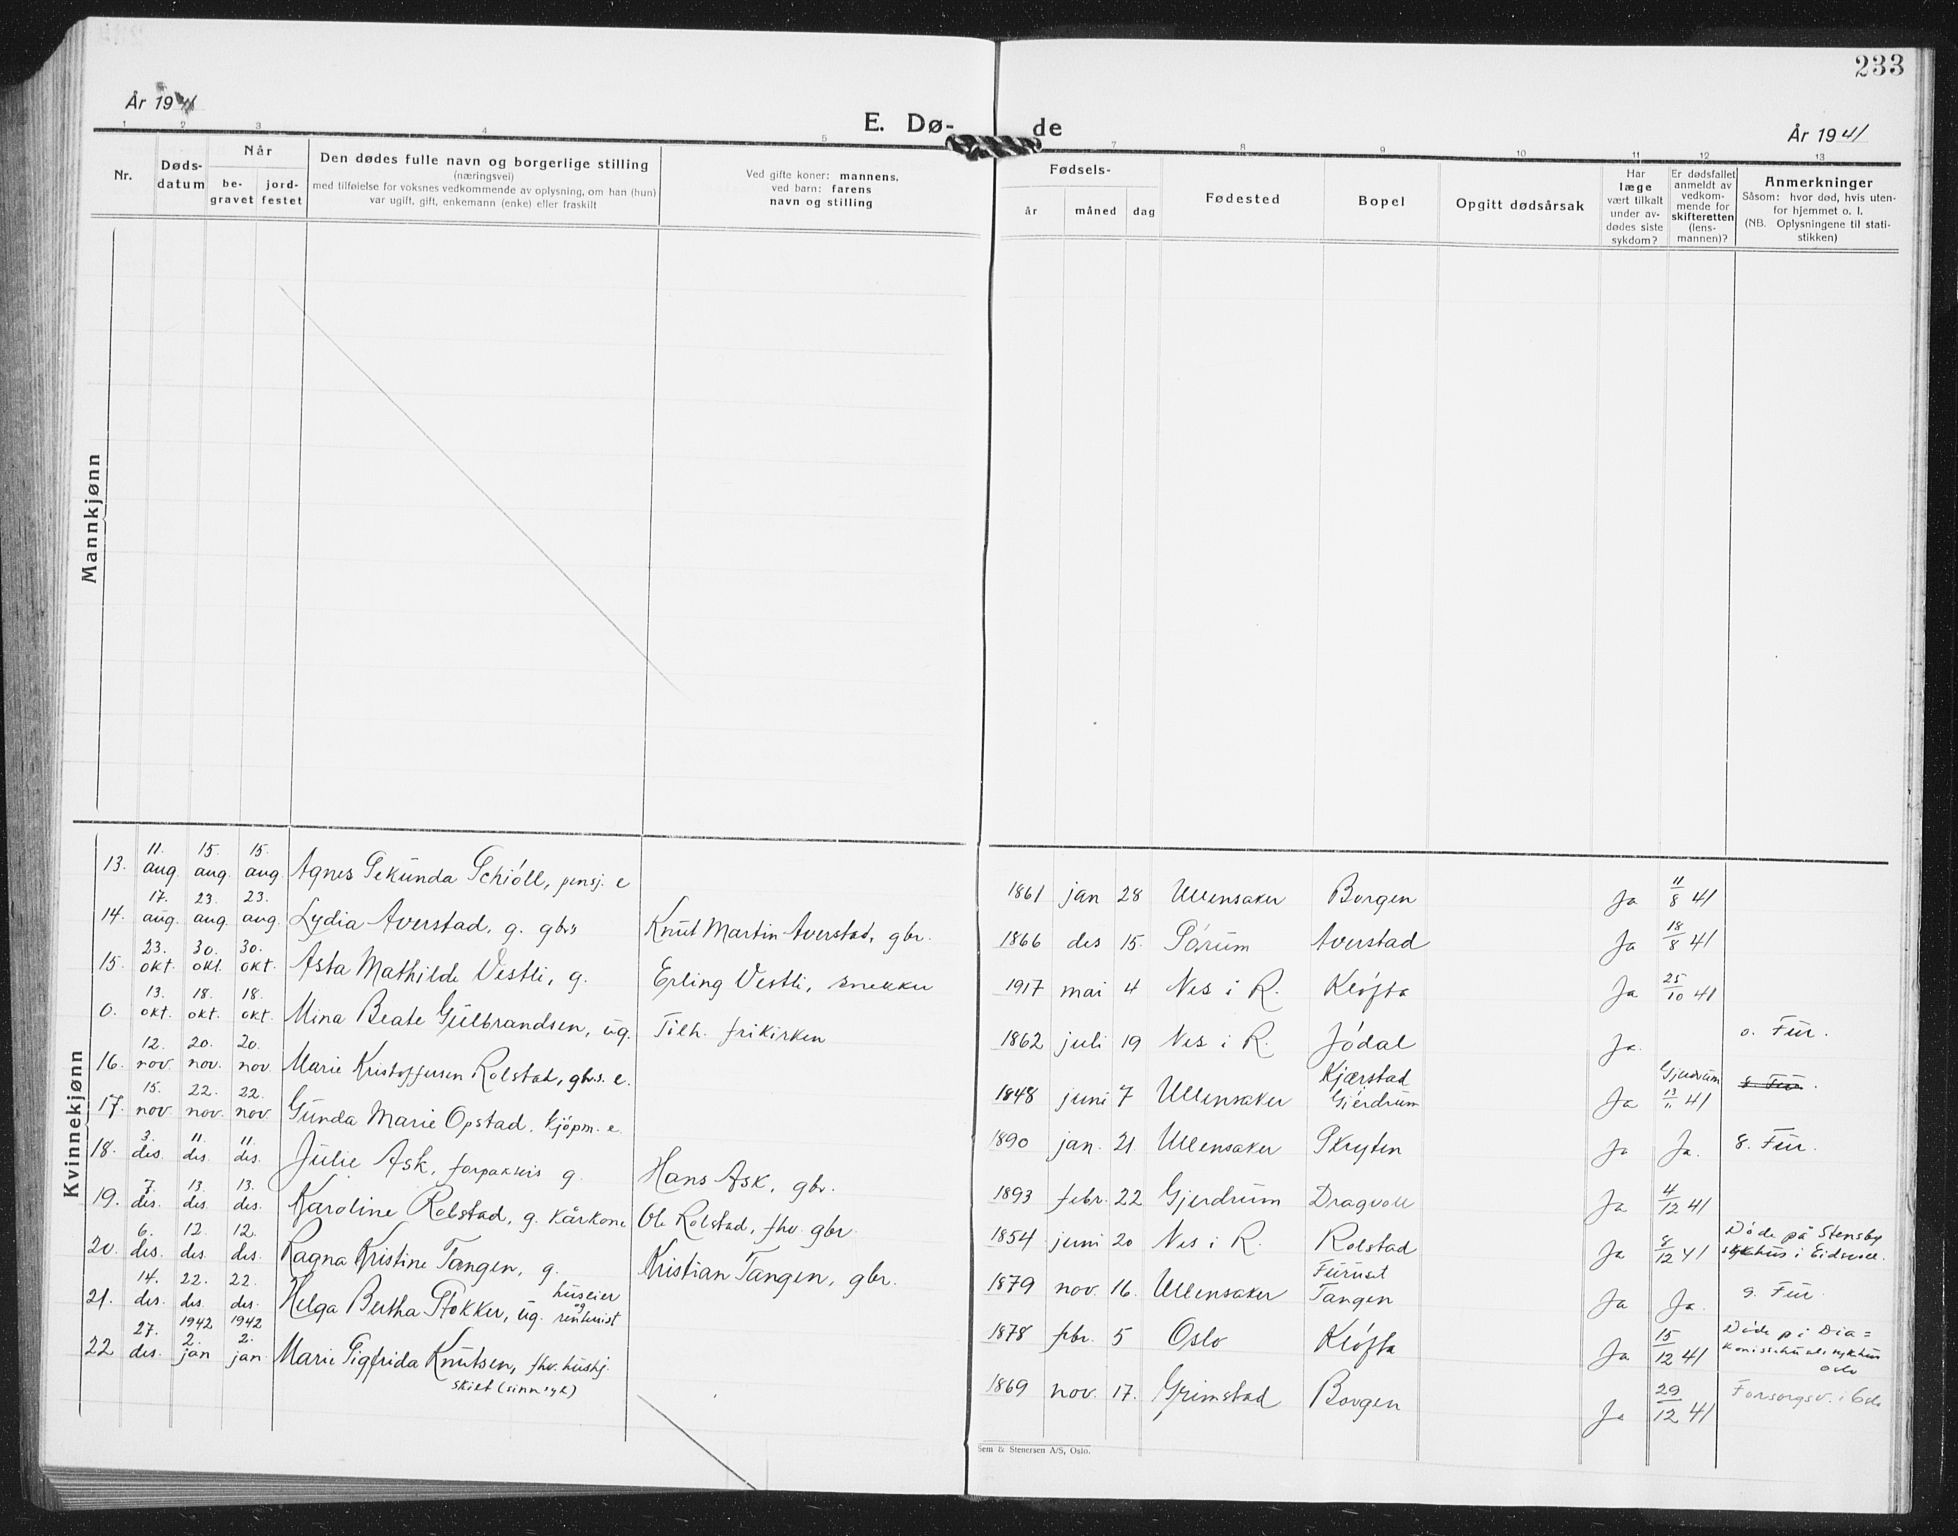 233
År 1941
E. Dø-
de
År 1941
1 2 3 4 5 7 8 9 10 11 12 13
Nr.
Døds-
datum
Når
be-
gravet
jord-
festet
Den dødes fulle navn og borgerlige stilling
(næringsvei)
med tilføielse for voksnes vedkommende av oplysning, om han (hun)
var ugift, gift, enkemann (enke) eller fraskilt
Ved gifte koner: mannens,
ved barn: farens
navn og stilling
Fødsels-
år måned dag
Fødested
Bopel
Opgitt dødsårsak
Har
læge
vært tilkalt
under av-
dødes siste
sykdom?
Er dødsfallet
anmeldt av
vedkom-
mende for
skifteretten
(lens-
mannen)?
Anmerkninger
Såsom: hvor død, hvis uten-
for hjemmet o. l.
(NB. Oplysningene til stati-
stikken)
Mannkjønn
Kvinnekjønn
13. 11. aug. 15. aug. 15. aug. Agnes Sekunda Schiöll, pensj. e 1861 jan 28 Ullensaker Borgen Ja 11/8 41
14. 17. aug. 23. aug. 23. aug. Lydia Averstad, g. gbrs Knut Martin Averstad, gbr. 1866 des 15. Sørum Averstad Ja 18/8 41
15. 23. okt. 30. okt. 30. okt. Asta Mathilde Vestli, g. Erling Vestli, snekker 1917 mai 4 Nes i R. Kløfta Ja 25/10 41
0. 13. okt. 18. okt. 18. okt. Mina Beate Gulbrandsen, ug. Tilh. frikirken 1862 juli 19 Nes i R. Jødal Ja. o. Fur.
16. 12. nov. 20. nov. 20. nov. Marie Kristoffersen Rolstad, gbrs. e. 1848 juni 7 Ullensaker Kjærstad Gjerdrum Ja Gjerdrum 13/11 41 g. Fur.
17. 15. nov. 22. nov. 22. nov. Gunda Marie Opstad, kjøpm. e. 1890 jan. 21 Ullensaker Skryten Ja Ja. g. Fur.
18. 3. des. 11. des. 11. des. Julie Ask, forpakters g. Hans Ask, gbr. 1893 febr. 22 Gjerdrum Dragvoll Ja 4/12 41
19. 7. des. 13. des. 13. des. Karoline Rolstad, g. kårkone Ole Rolstad, fhv. gbr. 1854 juni 20 Nes i R. Rolstad Ja 8/12 41 Døde på Stensby sykehus i Eidsvoll.
20. 6. des. 12. des. 12. des. Ragna Kristine Tangen, g. Kristian Tangen, gbr. 1879 nov. 16. Ullensaker Furuset Tangen Ja Ja. g. Fur.
21. 14. des. 22. des. 22. des. Helga Bertha Stokker, ug. huseier og rentenist 1878 febr. 5 Oslo Kløfta Ja 15/12 41 Døde på Dia= konissehusets sykehus Oslo
22 27. des. 1942 2. jan 1942 2. jan. Marie Sigfrida Knutsen, fhv. hushj. skilt (sinnsyk) 1869 nov. 17. Grimstad Borgen Ja 29/12 41 Forsorgsv. i Oslo
Sem & Stenersen A/S, Oslo.